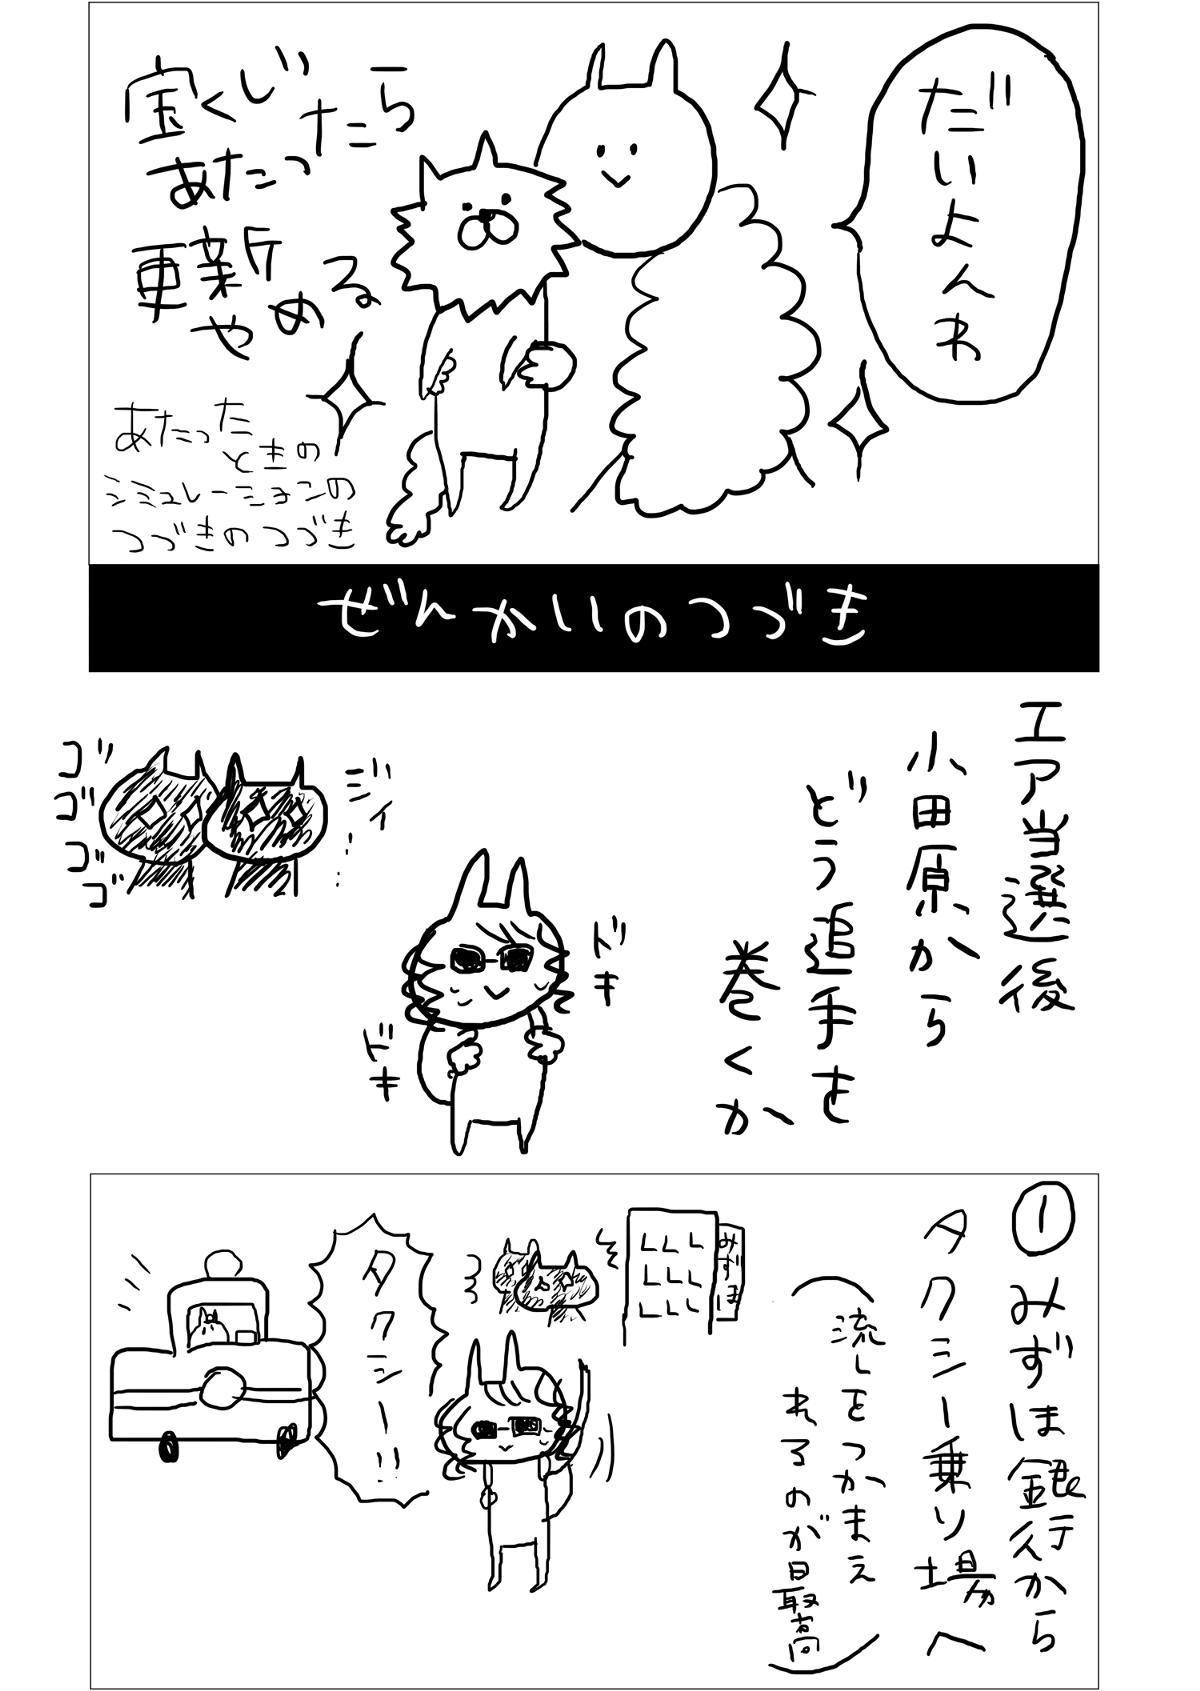 だいよんわ
宝くじ
あたったら
更新
やめる
あたった
ときの
シミュレーションの
つづきのつづき
ぜんかいのつづき
エア当選後
小田原から
どう追手を
巻くか
ジィ…
ゴゴゴゴ
ドキ
ドキ
①みずほ銀行から
タクシー乗り場へ
(流しをつかまえ
れるのが最高)
みずほ
タクシー!!